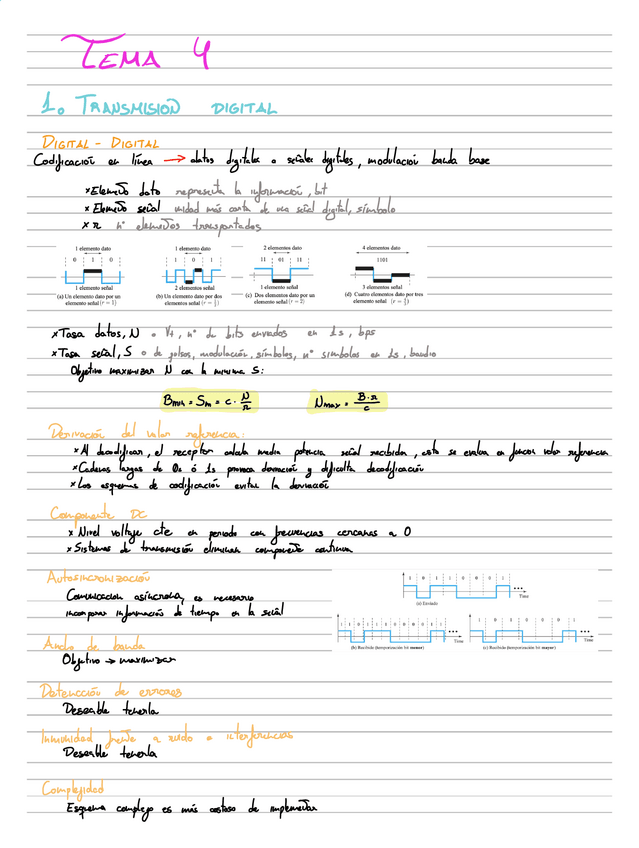 TEMA 4
1. TRANSMISION DIGITAL
DIGITAL - DIGITAL
Codificación en línea → datos digitales a señales digitales, modulación banda base
x Elemento dato representa la información, bit
x Elemento señal unidad más corta de una señal digital, símbolo
x r nº elementos transportados
1 elemento dato
0 1 0
1 elemento señal
(a) Un elemento dato por un elemento señal (r = 1)
1 elemento dato
1 0 1
2 elementos señal
(b) Un elemento dato por dos elementos señal (r = 1/2)
2 elementos dato
11 01 11
1 elemento señal
(c) Dos elementos dato por un elemento señal (r = 2)
4 elementos dato
1101
3 elementos señal
(d) Cuatro elementos dato por tres elementos señal (r = 4/3)
x Tasa datos, N o Vt, nº de bits enviados en 1s, bps
x Tasa señal, S o de pulsos, modulación, símbolos, nº simbolos en 1s, baudio
Objetivo maximizar N con la minima S:
Bmin = Sm = c · N/r Nmax = B·r/c
Derivación del valor referencia:
x Al decodificar, el receptor calcula media potencia señal recibida, esta se evalua en funcion valor referencia
x Cadenas largas de 0s ó 1s provoca derivación y dificulta decodificación
x Los esquemas de codificación evitan la derivación
Componente DC
x Nivel voltaje cte en periodo con frecuencias cercanas a 0
x Sistemas de transmisión eliminan componente continua
Autosincronización
Comunicacion asíncrona, es necesario
incorporar información de tiempo en la señal
1 0 1 1 0 0 0 1
Time
(a) Enviado
1 1 0 1 1 1 0 0 0 0 1 1
Time
(b) Recibido (temporización bit menor)
1 0 1 0 0 1
Time
(c) Recibido (temporización bit mayor)
Ancho de banda
Objetivo → maximizar
Detección de errores
Deseable tenerla
Inmunidad frente a ruido o interferencias
Deseable tenerla
Complejidad
Esquema complejo es más costoso de implementar